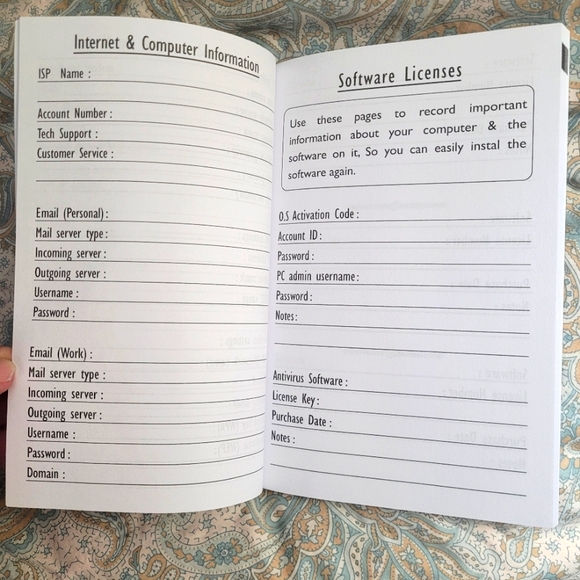 Internet & Computer Information
ISP Name :
Account Number :
Tech Support :
Customer Service :
Email (Personal) :
Mail server type :
Incoming server :
Outgoing server :
Username :
Password :
Email (Work) :
Mail server type :
Incoming server :
Outgoing server :
Username :
Password :
Domain :
Software Licenses
Use these pages to record important
information about your computer & the
software on it, So you can easily instal the
software again.
O.S Activation Code :
Account ID :
Password :
PC admin username:
Password :
Notes:
Antivirus Software :
License Key :
Purchase Date :
Notes :